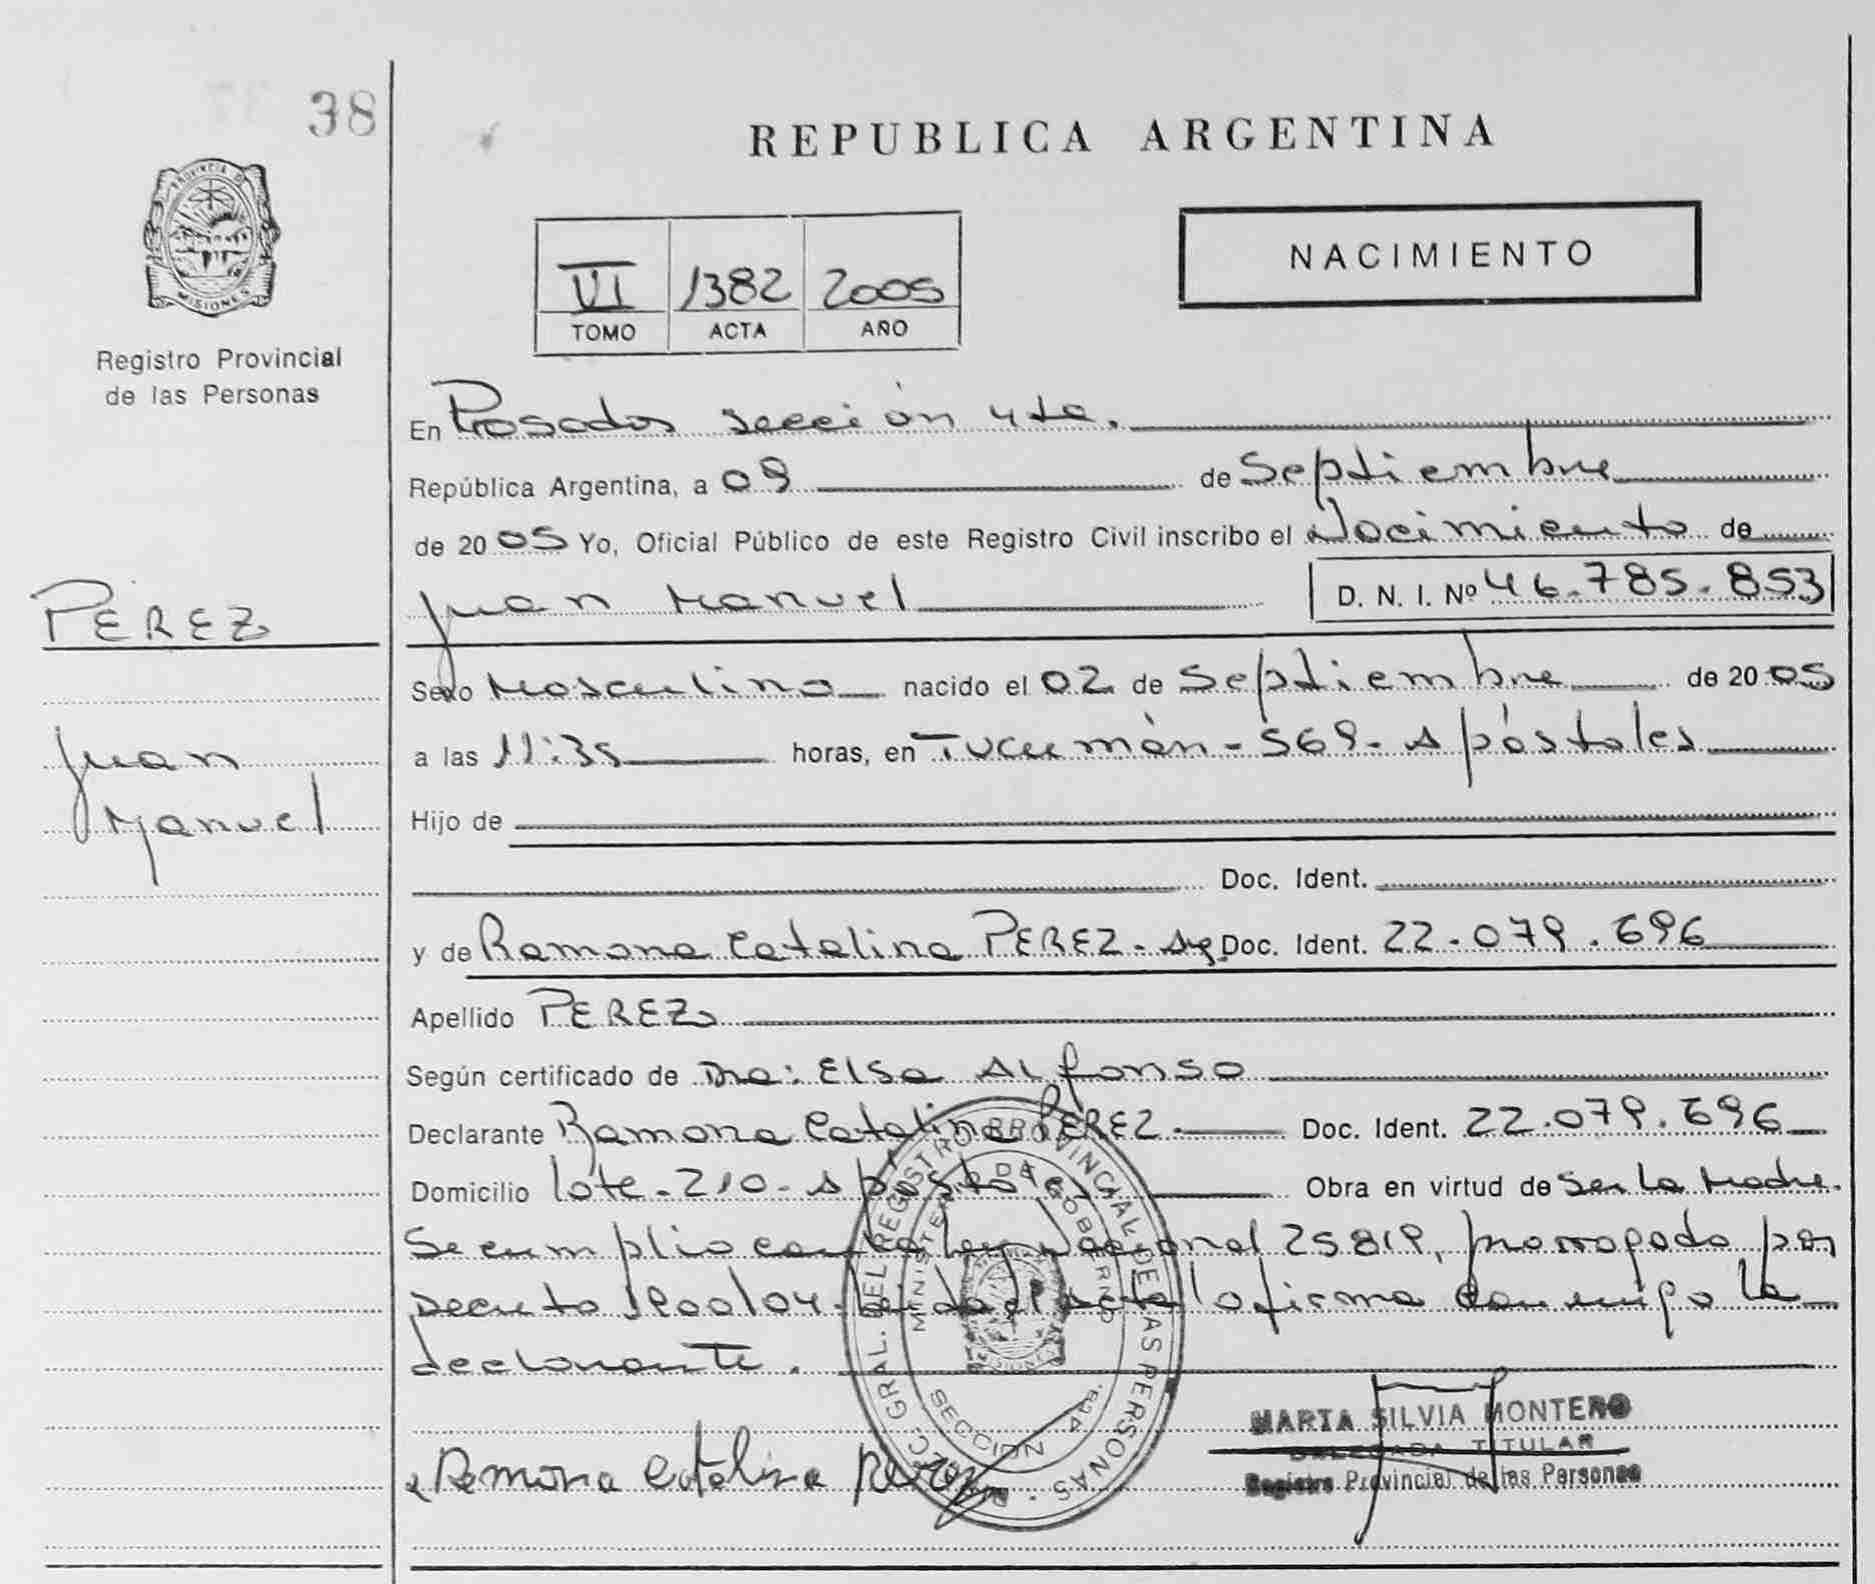 38
REPUBLICA ARGENTINA
PROVINCIA DE
MISIONES
Registro Provincial
de las Personas
NACIMIENTO
VI 1382 2005
TOMO ACTA AÑO
En Posadas sección 4ta.
República Argentina, a 09 de Septiembre
de 2005 Yo, Oficial Público de este Registro Civil inscribo el Nacimiento de
PEREZ
Juan Manuel D. N. I. Nº 46.785.853
Sexo Masculino nacido el 02 de Septiembre de 2005
Juan
a las 11:35 horas, en Tucumán - 569 - Apóstoles
Manuel
Hijo de
Doc. Ident.
y de Ramona Catalina PEREZ - Arg. Doc. Ident. 22.079.696
Apellido PEREZ
Según certificado de Dra: Elsa Alfonso
Declarante Ramona Catalina PEREZ - Doc. Ident. 22.079.696
Domicilio lote - 210 - Apóstoles Obra en virtud de Ser la Madre.
Se cumplio con la ley Nacional 25819, prorrogada por
Decreto 1900/04. Leida el acta lo firma conmigo la
declarante.
DEL REGISTRO PROVINCIAL DE LAS PERSONAS
MINISTERIO DE GOBIERNO
MISIONES
SECCION 4ta.
MARTA SILVIA MONTERO
DELEGADA TITULAR
Registro Provincial de las Personas
Ramona Catalina Perez